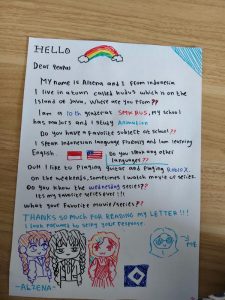 HELLO
Dear Penpal
My name is Alžena and I from Indonesia
I live in a town called Kudus which is on the
Island of Java, Where are you from??
I am a 10th grader at SMK RUS, my school
has majors and I study Animation
Do you have a favorite subject at school??
I speak Indonesian language fluently and iam learning
English
Do you speak any other
languages??
Ouh I like to Playing guitar and playing Roblox.
on the weekends, sometimes I watch movie or series.
Do you know the wednesday series??
Its my favorite series ever!!
What your favorite movie/series?
THANKS SO MUCH FOR READING MY LETTER!!!
I look forward to seeing your response.
ME
-ALŽENA-